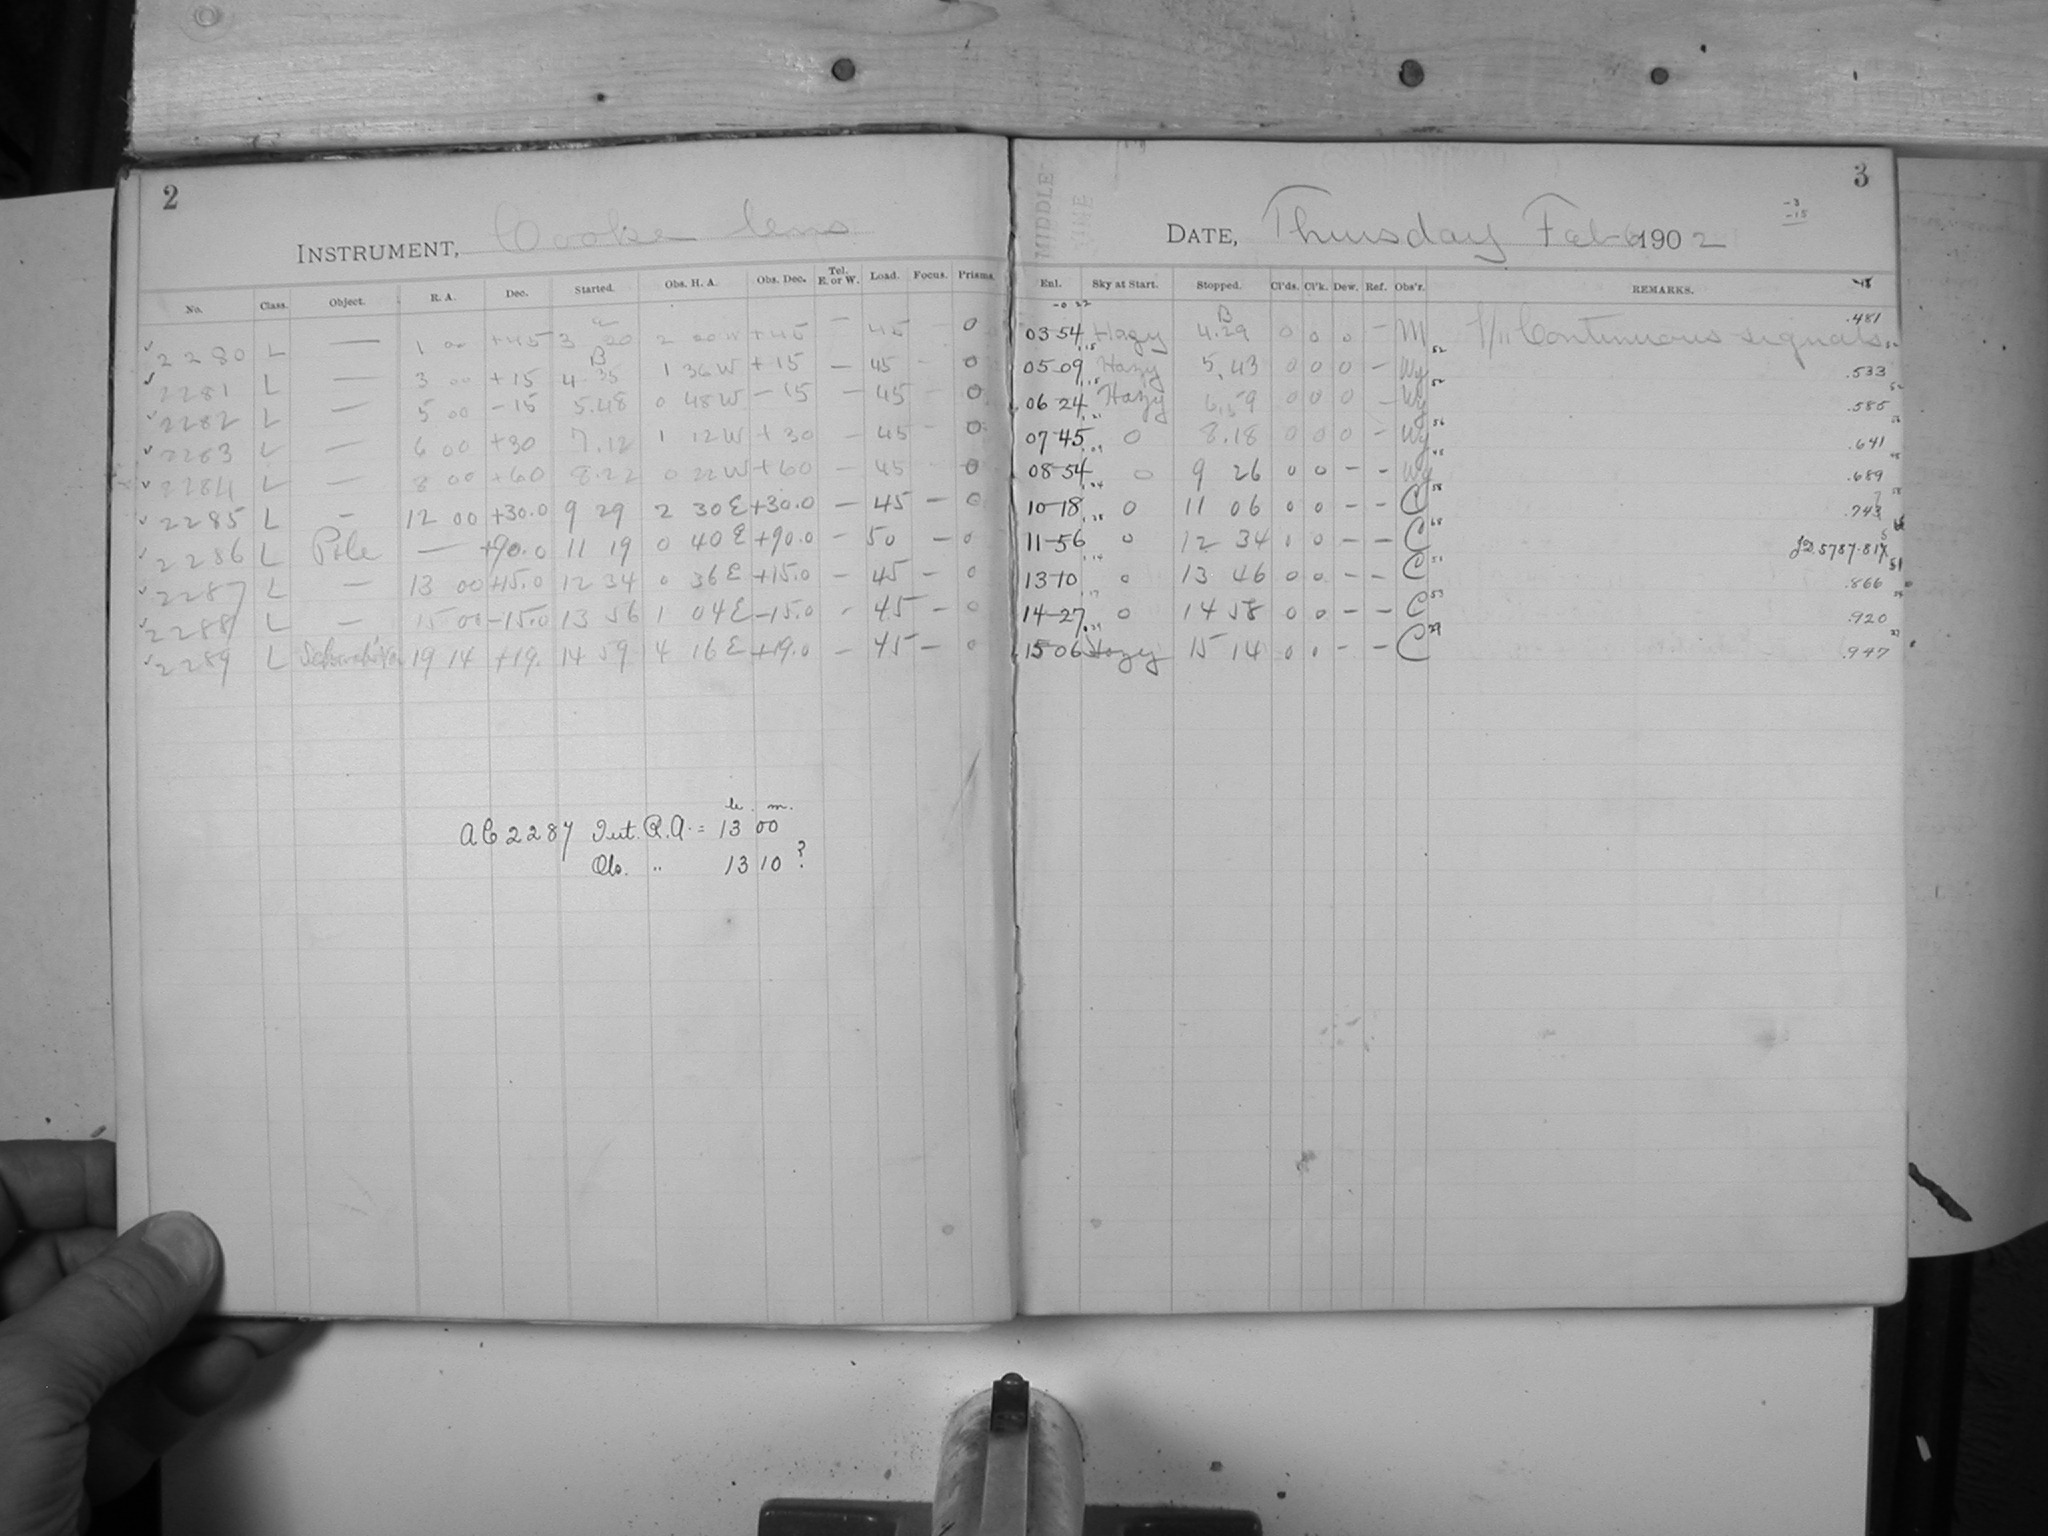 2
INSTRUMENT, Cooke lens
No. Class. Object. R. A. Dec. Started. Obs. H. A. Obs. Dec. Tel. E. or W. Load. Focus. Prisms.
2280 L — 1 00 +45 3 20 2 20 W +45 — 45 - 0
2281 L — 3 00 +15 4 35 1 36 W +15 — 45 - 0
2282 L — 5 00 -15 5.48 0 48 W -15 — 45 - 0
2283 L — 6 00 +30 7.12 1 12 W +30 — 45 - 0
2284 L — 8 00 +60 8.22 0 22 W +60 — 45 - 0
2285 L — 12 00 +30.0 9 29 2 30 E +30.0 — 45 — 0
2286 L Pole — +90.0 11 19 0 40 E +90.0 — 50 — 0
2287 L — 13 00 +15.0 12 34 0 36 E +15.0 — 45 — 0
2288 L — 15 00 -15.0 13 56 1 04 E -15.0 - 45 — 0
2289 L 19 14 +19. 14 59 4 16 E +19.0 — 45 — 0
h. m.
AC 2287 Int. R.A. = 13 00
Obs. " 13 10 ?
MIDDLE
3
DATE, Thursday Feb 6 1902
-3
-15
-18
Enl. Sky at Start. Stopped. Cl'ds. Cl'k. Dew. Ref. Obs'r. REMARKS.
03-54 Hazy 4.29 0 0 0 — M f/11 Continuous signals. .481
05-09 Hazy 5.43 0 0 0 — Wy 52 .533
06 24 Hazy 6.59 0 0 0 — Wy 52 .585
07-45 0 8.18 0 0 0 — Wy 56 .641
08-54 0 9 26 0 0 — — Wy 48 .689
10-18 0 11 06 0 0 — — C 58 .743
11-56 0 12 34 0 0 — — C 68 J.D. 5787.817
13 10 0 13 46 0 0 — — C 51 .866
14-27 0 14 58 0 0 — — C 53 .920
15-06 Hazy 15 14 0 0 — — C 29 .947